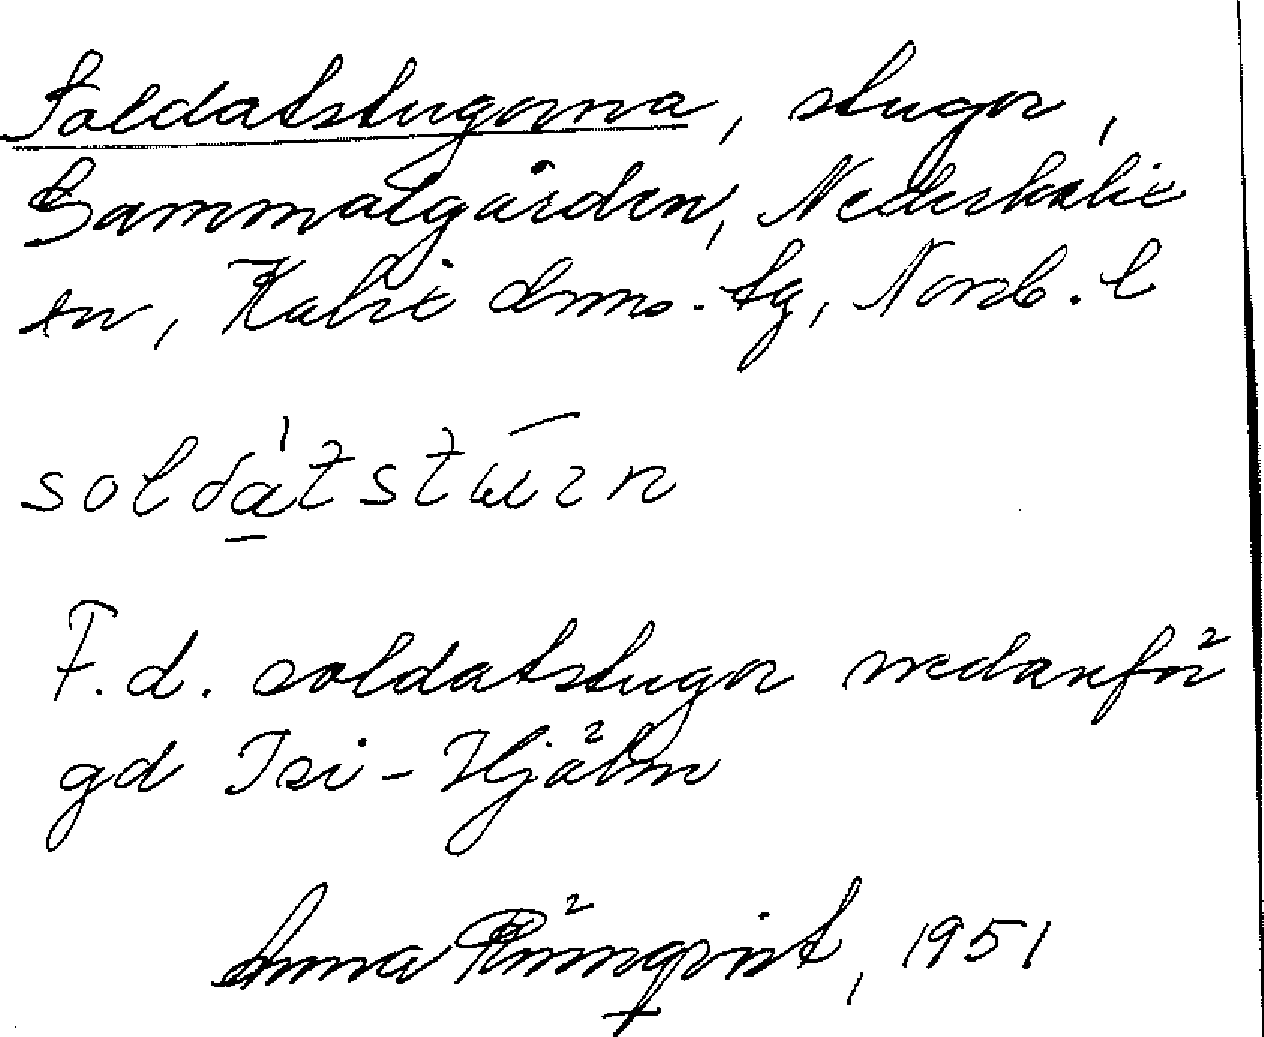 Soldatstugorna, stugor,
Gammelgården, Nederkalix
sn, Kalix dms. tg, Norrb. l
soldátstūrn
F.d. soldatstugor nedanför
gd Isi-Hjälm
Anna Rönnqvist, 1951